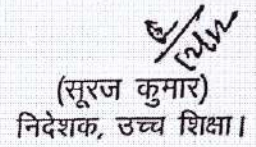 (सूरज कुमार)
निदेशक, उच्च शिक्षा।